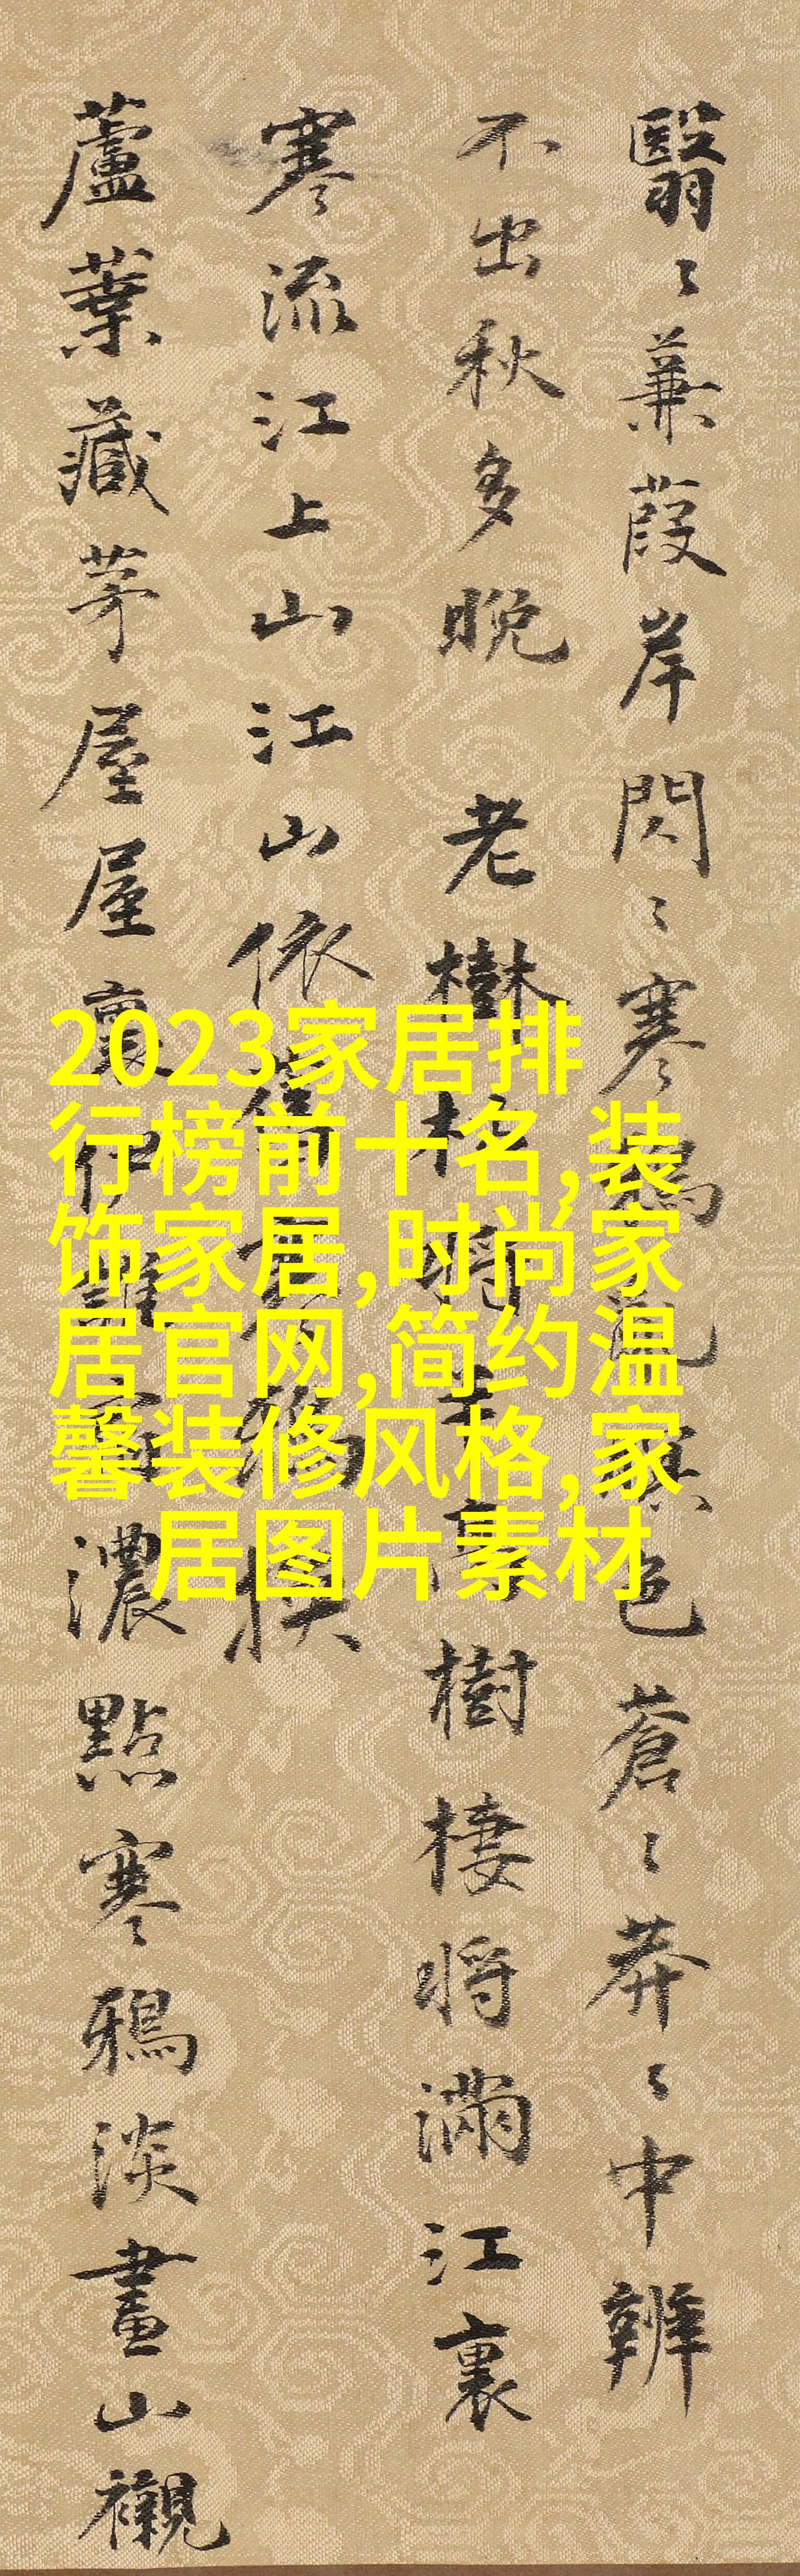 翳〻蒹葭岸閃〻寒鴉色蒼〻莽〻中辨
不出秋多晚 老樹枯將樹棲將滿江裏
寒流江上山江山依舊
蘆葉藏茅屋屋裏伊誰濃點寒鴉淡畫山襯
2023家居排
行榜前十名,装
饰家居,时尚家
居官网,简约温
馨装修风格,家
居图片素材